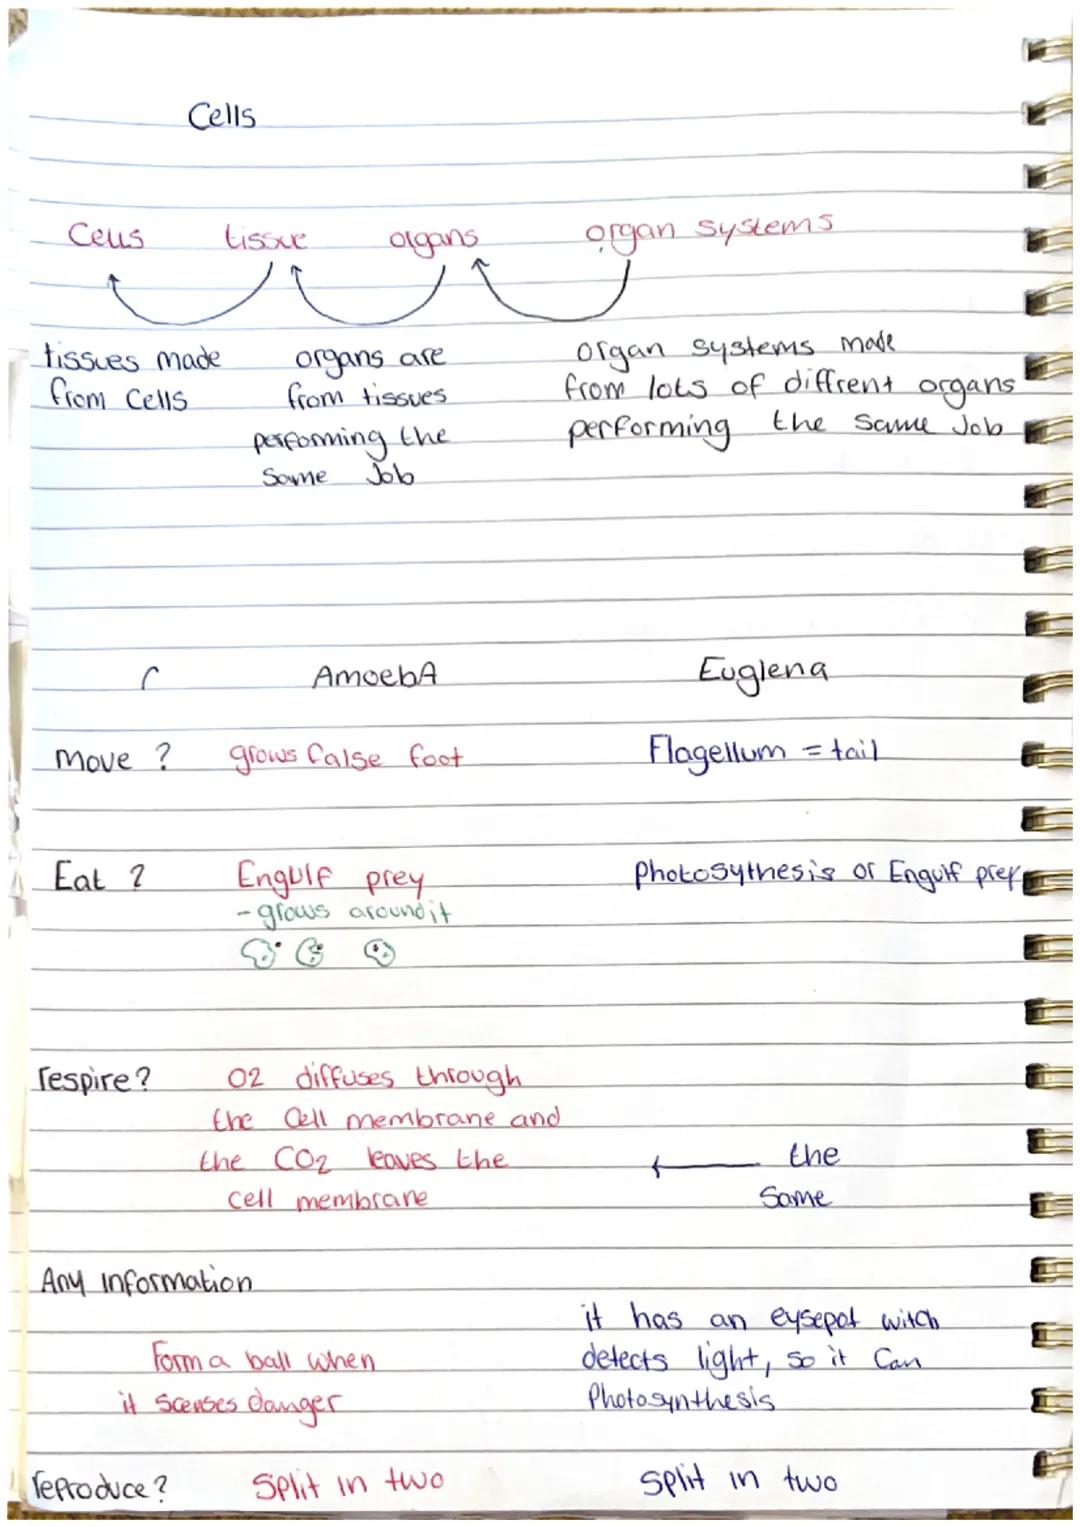 Cells
Cells tissue organs organ systems
tissues made organs are organ systems made
from cells from tissues from lots of diffrent organs
performing the performing the same Job
Same Job
AmoebA Euglena
Move ? grows false foot Flagellum = tail
Eat ? Engulf prey Photosythesis or Engulf prey
- grows around it
respire? O2 diffuses through
the Cell membrane and
the CO2 leaves the the
cell membrane Same
Any information
it has an eysepot witch
Form a ball when detects light, so it Can
it scenses danger Photosynthesis
reproduce? Split in two Split in two